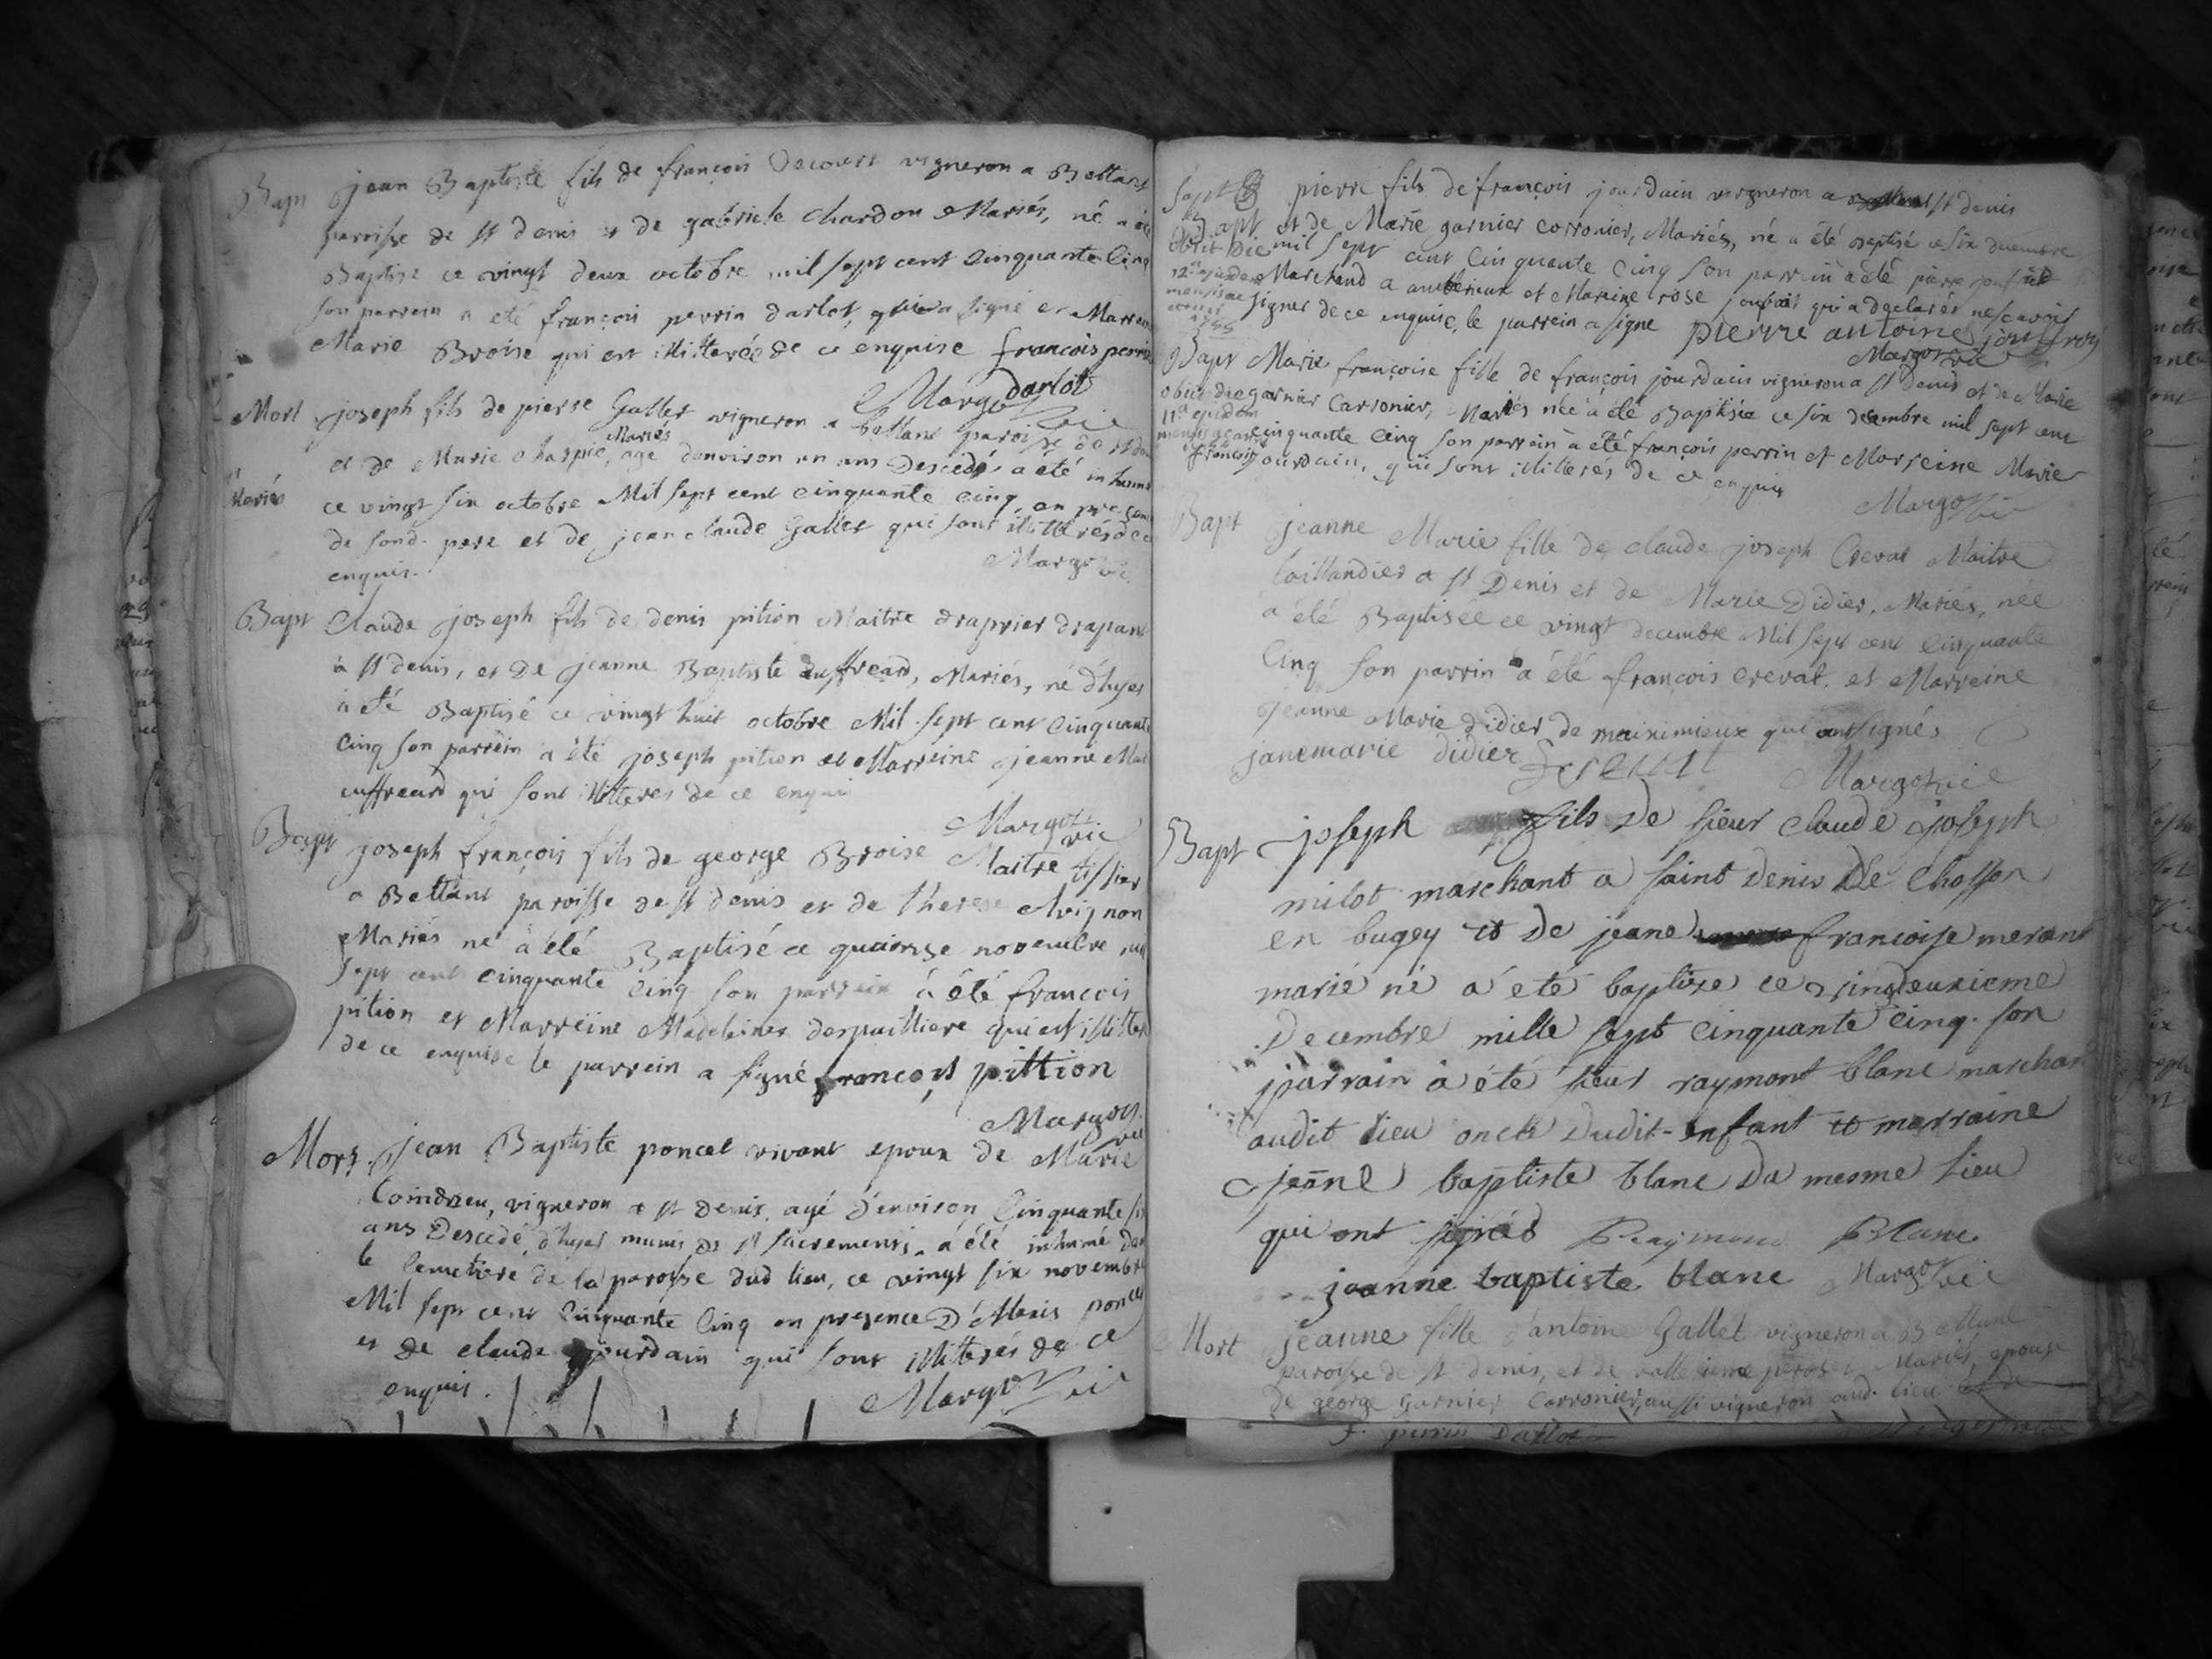 Bapt jean Baptiste fils de françois Decourt vigneron a Bettant
paroisse de st denis et de gabriele chardon Mariés, né a été
Baptise ce vingt deux octobre mil sept cent Cinquante Cinq
son parrein a eté françois perrin darlot, qui a signé et Marreine
Marie Broise qui est illiterée de ce enquise francois perrin
darlot
Margot vic
Mort joseph fils de pierse Gallet vigneron a bettant paroisse de st denis
Mariés
et de Marie chaspie, agé denviron un ans Descedé a été inhumé
Mariés ce vingt six octobre Mil sept cent cinquante cinq, en presence
de sond. pere et de jean claude Gallet qui sont illitterés de ce
enquis.
Margot vic
Bapt Claude joseph fils de denis pition Maitre drapier drapant
a st denis, et De jeanne Baptiste cuffreard, Mariés, né d'hyer
a été Baptisé ce vingt huit octobre Mil sept cent Cinquante
Cinq son parrein a été joseph pition et Marreine jeanne Marie
cuffreard qui sont illitterés de ce enquis
Margot vic
Bapt joseph françois fils de george Broise Maitre tissier
a Bettant paroisse de st denis et de therese Avignon
Mariés né a été Baptisé ce quatorze novembre mil
sept cent cinquante Cinq son parrein a été francois
pition et Marreine Madeleine despuilliere qui est illitterée
de ce enquise le parrein a signé françois pittion
Margot vic
Mort jean Baptiste poncet vivant epoux de Marie
Coindreu, vigneron a st denis, agé d'environ Cinquante six
ans Descedé d'hyer munis de st sacrements, a été inhumé dans
le Cemetiere de la paroisse dud lieu, ce vingt six novembre
Mil sept cent Cinquante Cinq en presence D'Alexis poncet
et de claude jourdain qui sont illiterés de ce
enquis.
Margot vic
pierre fils de françois jourdain vigneron a st denis
Bapt et de Marie garnier corronier, Mariés, né a été Baptisé ce six decembre
obiit die mil sept cent Cinquante Cinq son parrein a été pierre joufroid
12a ejusdem Marchand a amberieux et Marreine rose joufroid qui a declarés ne scavoir
mensis ac signer de ce enquise, le parrein a signé pierre antoine joufroy
anni 1755
Margot vic
Bapt Marie françoise fille de françois jourdain vigneron a st denis et de Marie
obiit die garnier Carronier, Mariés née a été Baptisée ce six decembre mil sept cent
11a ejusdem
mensis ac anni cinquante Cinq son parrein a été françois perrin et Marreine Marie
françoise jourdain, qui sont illiterés de ce enquis
Margot vic
Bapt jeanne Marie fille de claude joseph Creval Maitre
taillandier a st Denis et de Marie Didier, Mariés, née
a été Baptisée ce vingt decembre Mil sept cent Cinquante
Cinq son parrin a été françois creval, et Marreine
Jeanne Marie didier de maiximieux qui ont signés
janemarie didier
Margot vic
Bapt joseph fils de sieur claude joseph
milot marchant a saint denis De Chosson
en bugey et De jeane francoise merant
marié né a été baptize ce vingtdeuxieme
Decembre mille sept cinquante cinq. son
parrain a été sieur raymont blanc marchant
audit lieu oncle dudit enfant et marraine
jeane baptiste blanc du mesme lieu
qui ont signés Raymond Blanc
jeanne baptiste blanc Margot vic
Mort jeanne fille d'antoine Gallet vigneron a Bettant
paroisse de st denis, et de Mariés, epouse
de george Garnier Carronier, aussi vigneron aud. lieu
perrin Darlot